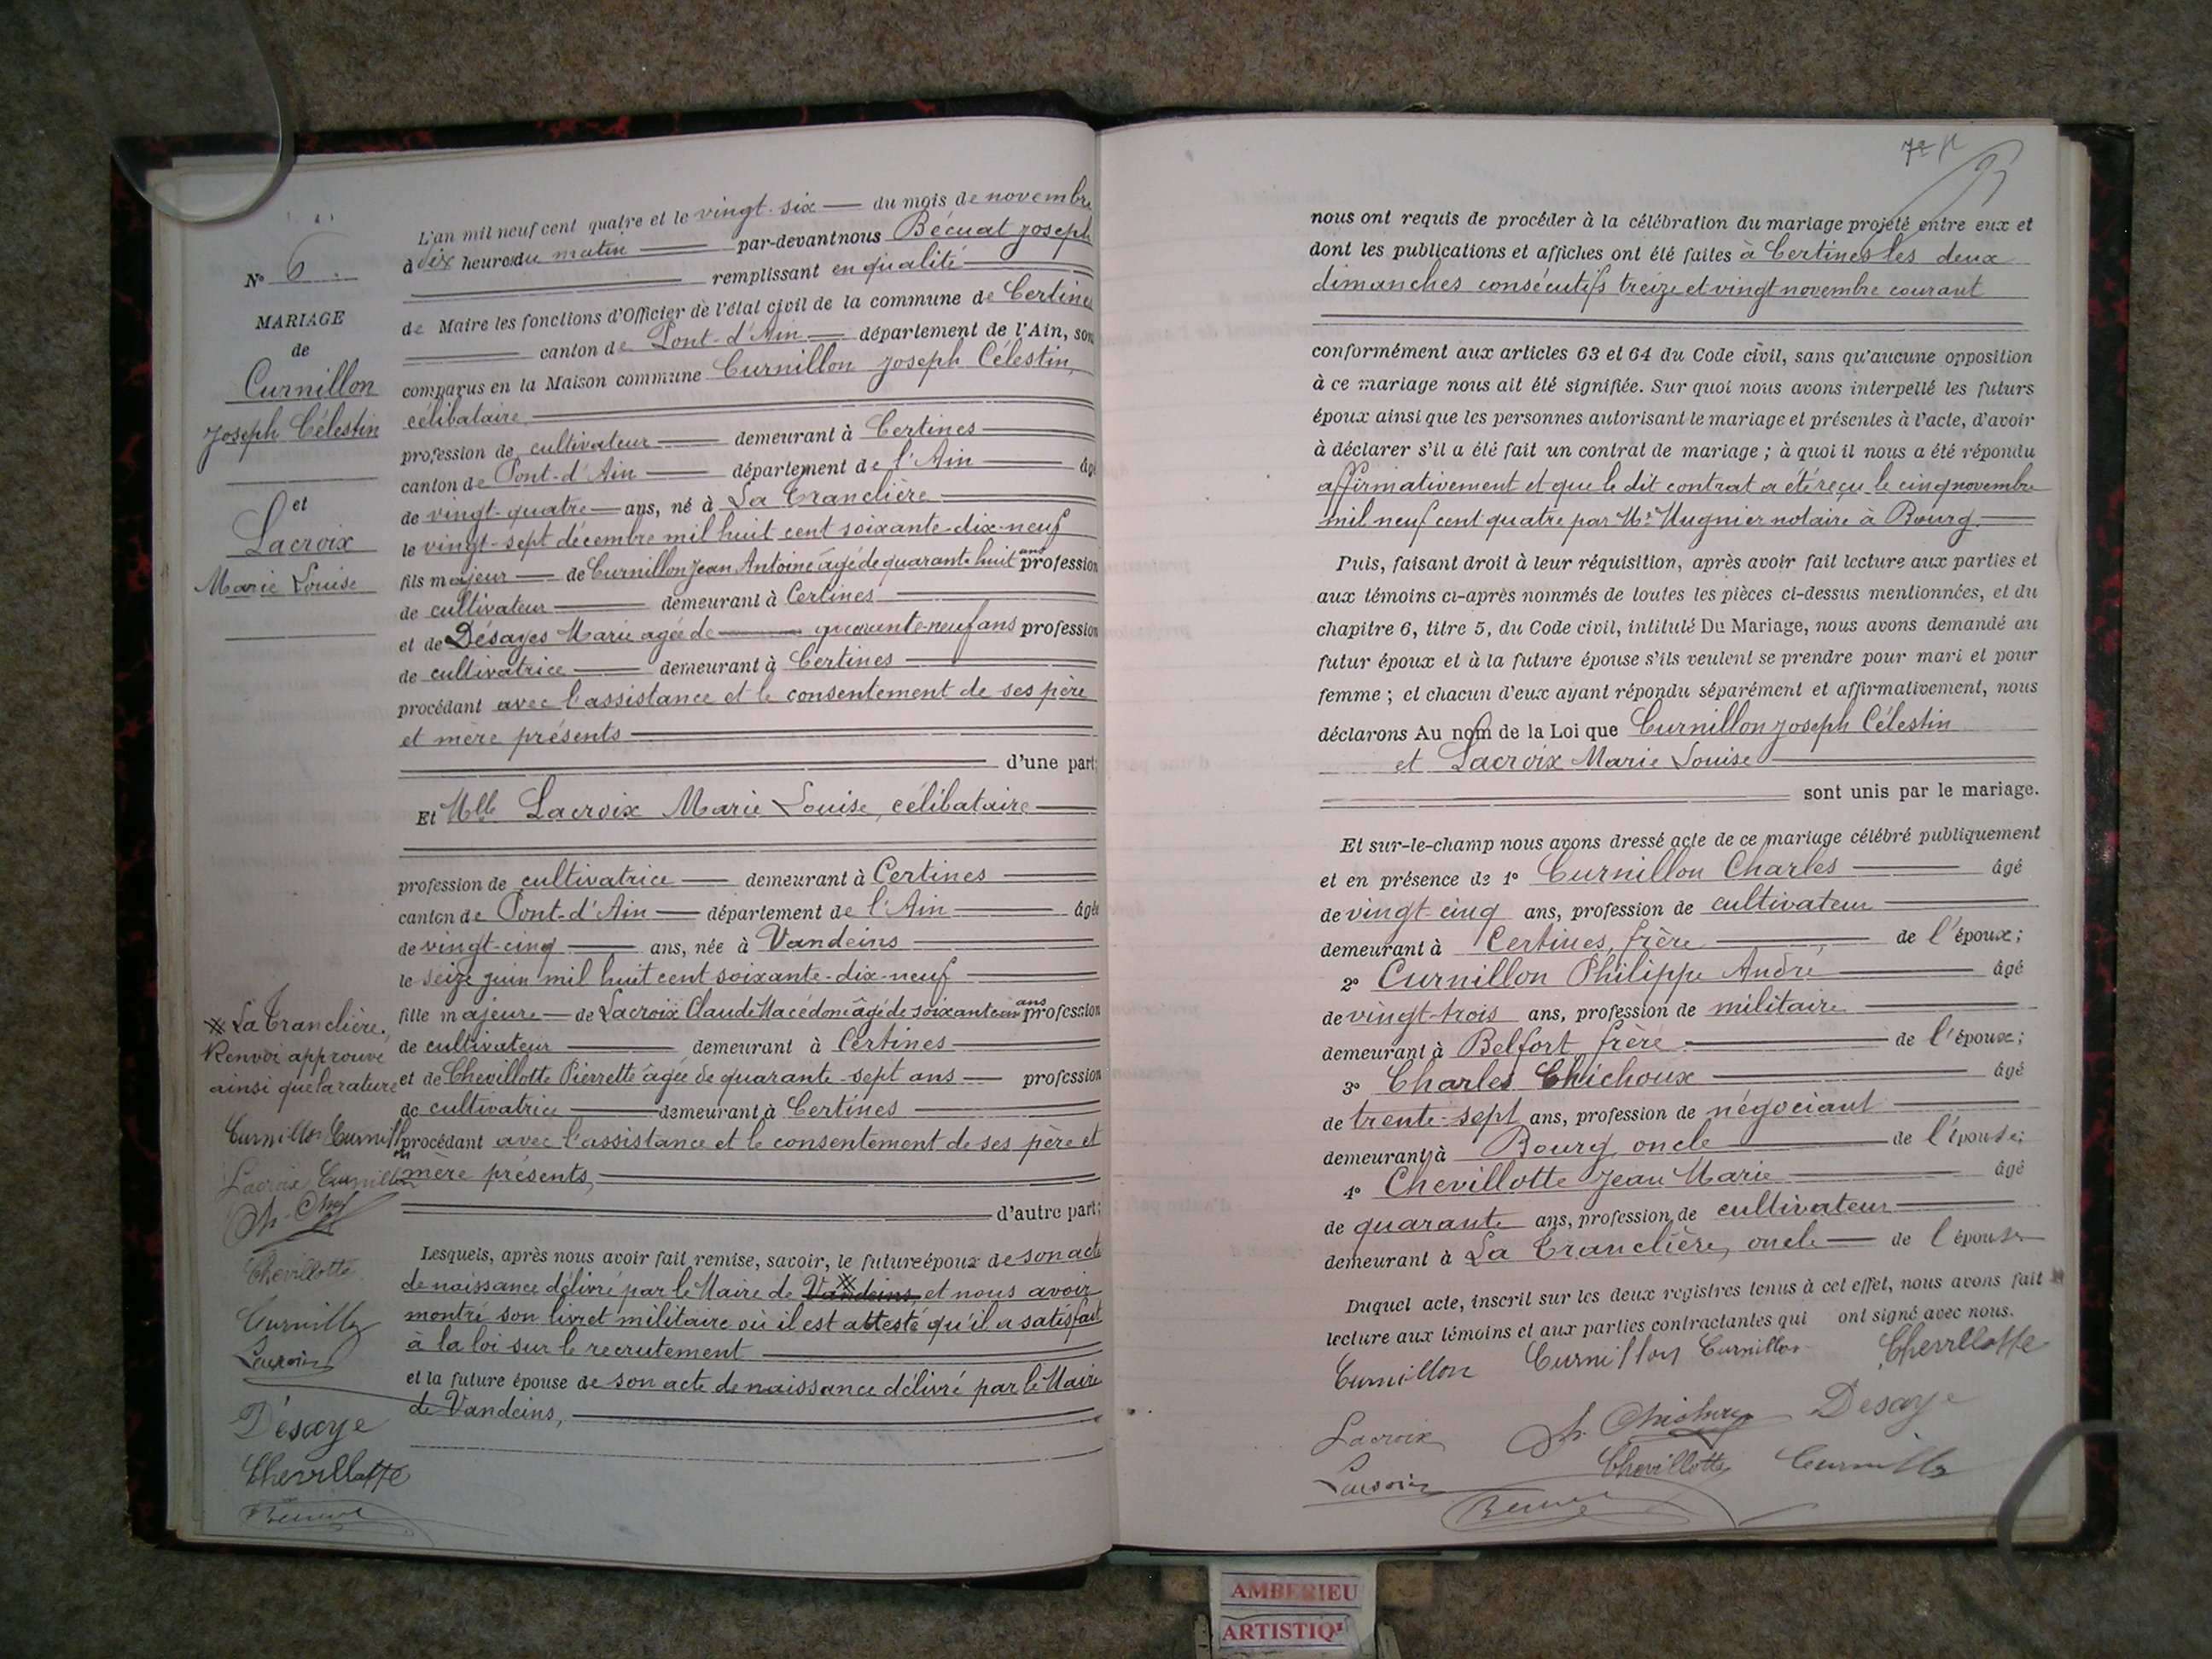 N° 6
MARIAGE
de
Curnillon
Joseph Célestin
et
Lacroix
Marie Louise
L'an mil neuf cent quatre et le vingt-six du mois de novembre
à dix heures du matin par-devant nous Bécuat Joseph
remplissant en qualité
de Maire les fonctions d'Officier de l'état civil de la commune de Certines
canton de Pont-d'Ain département de l'Ain, sont
comparus en la Maison commune Curnillon Joseph Célestin,
célibataire
profession de cultivateur demeurant à Certines
canton de Pont-d'Ain département de l'Ain âgé
de vingt-quatre ans, né à La Tranclière
le vingt-sept décembre mil huit cent soixante-dix-neuf
fils majeur de Curnillon Jean Antoine âgé de quarante huit ans profession
de cultivateur demeurant à Certines
et de Désayes Marie agée de quarante-neuf ans profession
de cultivatrice demeurant à Certines
procédant avec l'assistance et le consentement de ses père
et mère présents
d'une part;
Et Mlle Lacroix Marie Louise, célibataire
profession de cultivatrice demeurant à Certines
canton de Pont-d'Ain département de l'Ain âgée
de vingt-cinq ans, née à Vandeins
le seize juin mil huit cent soixante-dix-neuf
fille majeure de Lacroix Claude Macédoine âgé de soixante un ans profession
de cultivateur demeurant à Certines
et de Chevillotte Pierrette âgée de quarante-sept ans profession
de cultivatrice demeurant à Certines
procédant avec l'assistance et le consentement de ses père et
mère présents,
d'autre part;
Lesquels, après nous avoir fait remise, savoir, le future époux de son acte
de naissance délivré par le Maire de Vandeins, et nous avoir
montré son livret militaire où il est attesté qu'il a satisfait
à la loi sur le recrutement
et la future épouse de son acte de naissance délivré par le Maire
de Vandeins,
La Tranclière.
Renvoi approuvé
ainsi que la rature
Curnillon Curnillon
Lacroix Curnillon
Chevillotte
Curnillon
Lacroix
Désaye
Chevillotte
nous ont requis de procéder à la célébration du mariage projeté entre eux et
dont les publications et affiches ont été faites à Certines les deux
dimanches consécutifs treize et vingt novembre courant
conformément aux articles 63 et 64 du Code civil, sans qu'aucune opposition
à ce mariage nous ait été signifiée. Sur quoi nous avons interpellé les futurs
époux ainsi que les personnes autorisant le mariage et présentes à l'acte, d'avoir
à déclarer s'il a été fait un contrat de mariage ; à quoi il nous a été répondu
affirmativement et que le dit contrat a été reçu le cinq novembre
mil neuf cent quatre par Me Mugnier notaire à Bourg.
Puis, faisant droit à leur réquisition, après avoir fait lecture aux parties et
aux témoins ci-après nommés de toutes les pièces ci-dessus mentionnées, et du
chapitre 6, titre 5, du Code civil, intitulé Du Mariage, nous avons demandé au
futur époux et à la future épouse s'ils veulent se prendre pour mari et pour
femme ; et chacun d'eux ayant répondu séparément et affirmativement, nous
déclarons Au nom de la Loi que Curnillon Joseph Célestin
et Lacroix Marie Louise
sont unis par le mariage.
Et sur-le-champ nous avons dressé acte de ce mariage célébré publiquement
et en présence de 1° Curnillon Charles âgé
de vingt cinq ans, profession de cultivateur
demeurant à Certines, frère de l'époux;
2° Curnillon Philippe André âgé
de vingt-trois ans, profession de militaire
demeurant à Belfort frère de l'époux;
3° Charles Chichoux âgé
de trente-sept ans, profession de négociant
demeurant à Bourg, oncle de l'épouse;
4° Chevillotte Jean Marie âgé
de quarante ans, profession de cultivateur
demeurant à La Tranclière, oncle de l'épouse
Duquel acte, inscrit sur les deux registres tenus à cet effet, nous avons fait
lecture aux témoins et aux parties contractantes qui ont signé avec nous.
Curnillon Curnillon Curnillon Chevillotte
Lacroix Ch. Chichoux Desaye
Lacroix Chevillotte Curnillon
AMBERIEU
ARTISTIQ